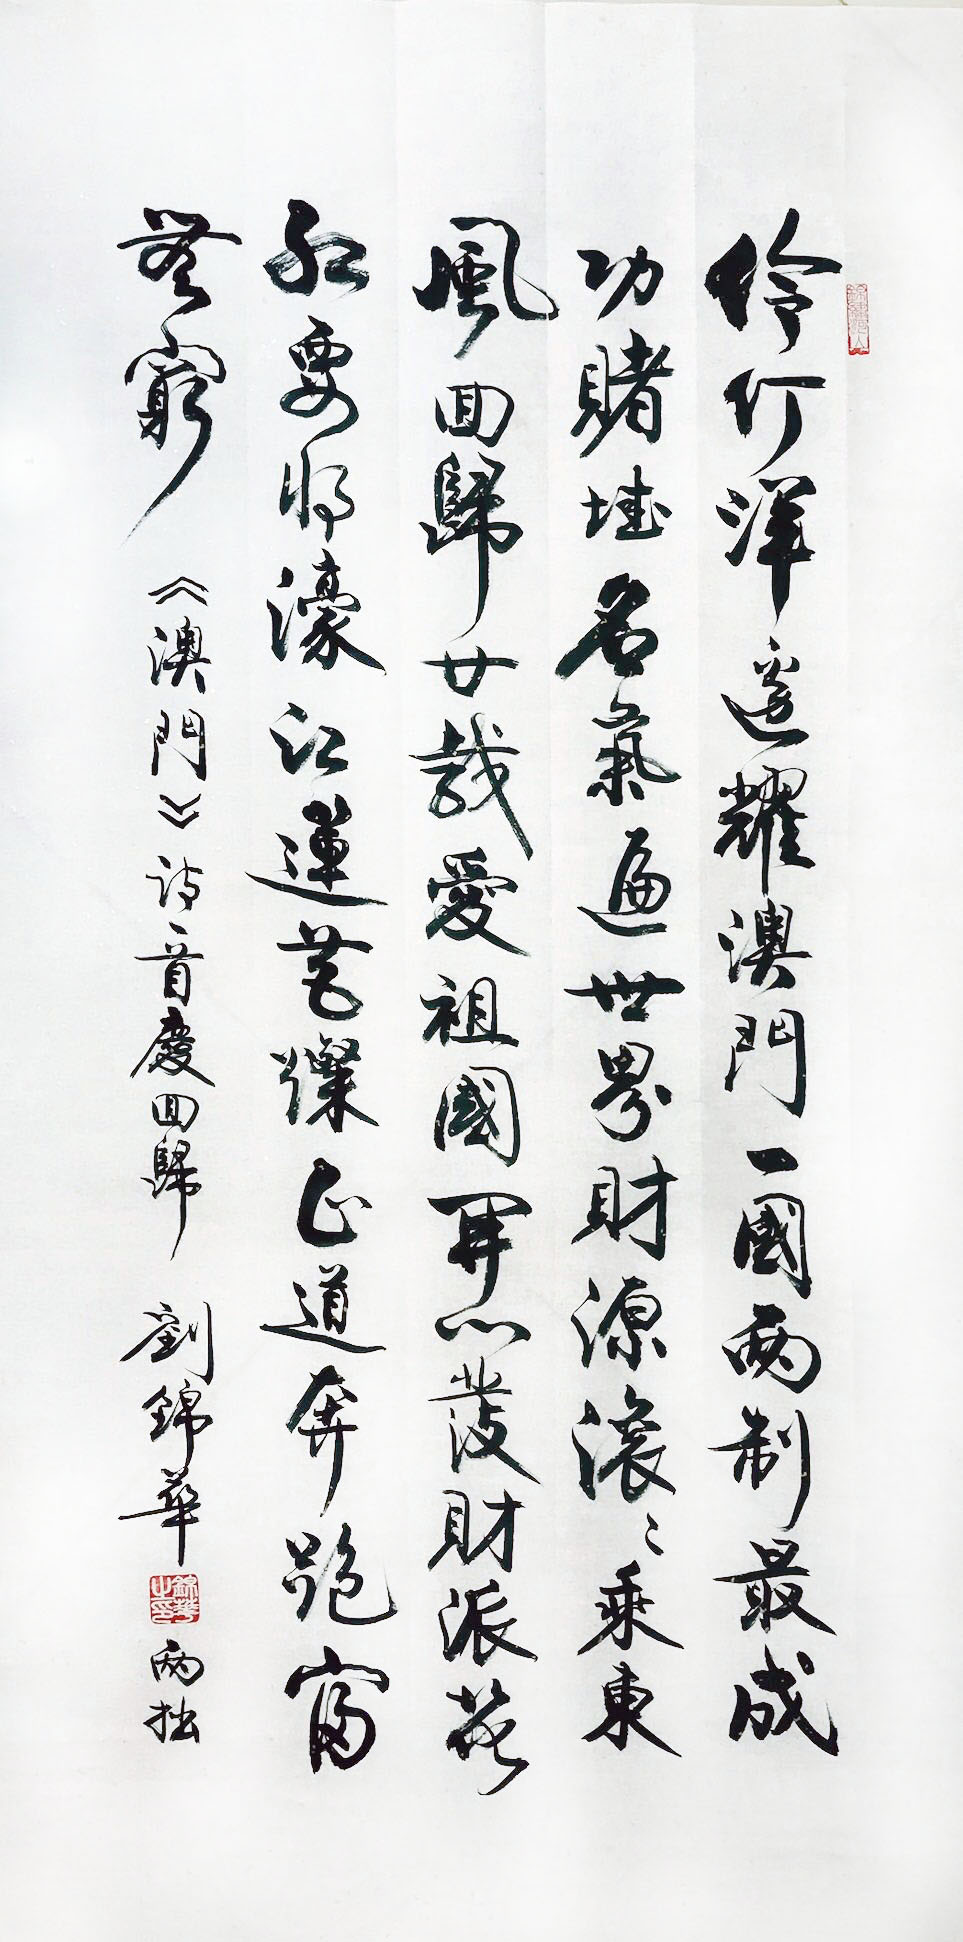 伶仃洋邊耀澳門一國兩制最成
功賭城名氣遍世界財源滾〻乘東
風回歸廿載愛祖國開心發財派花
紅要將濠江蓮花燦正道奔跑富
無窮
《澳門》詩一首慶回歸 劉錦華 錦華之印 兩拙